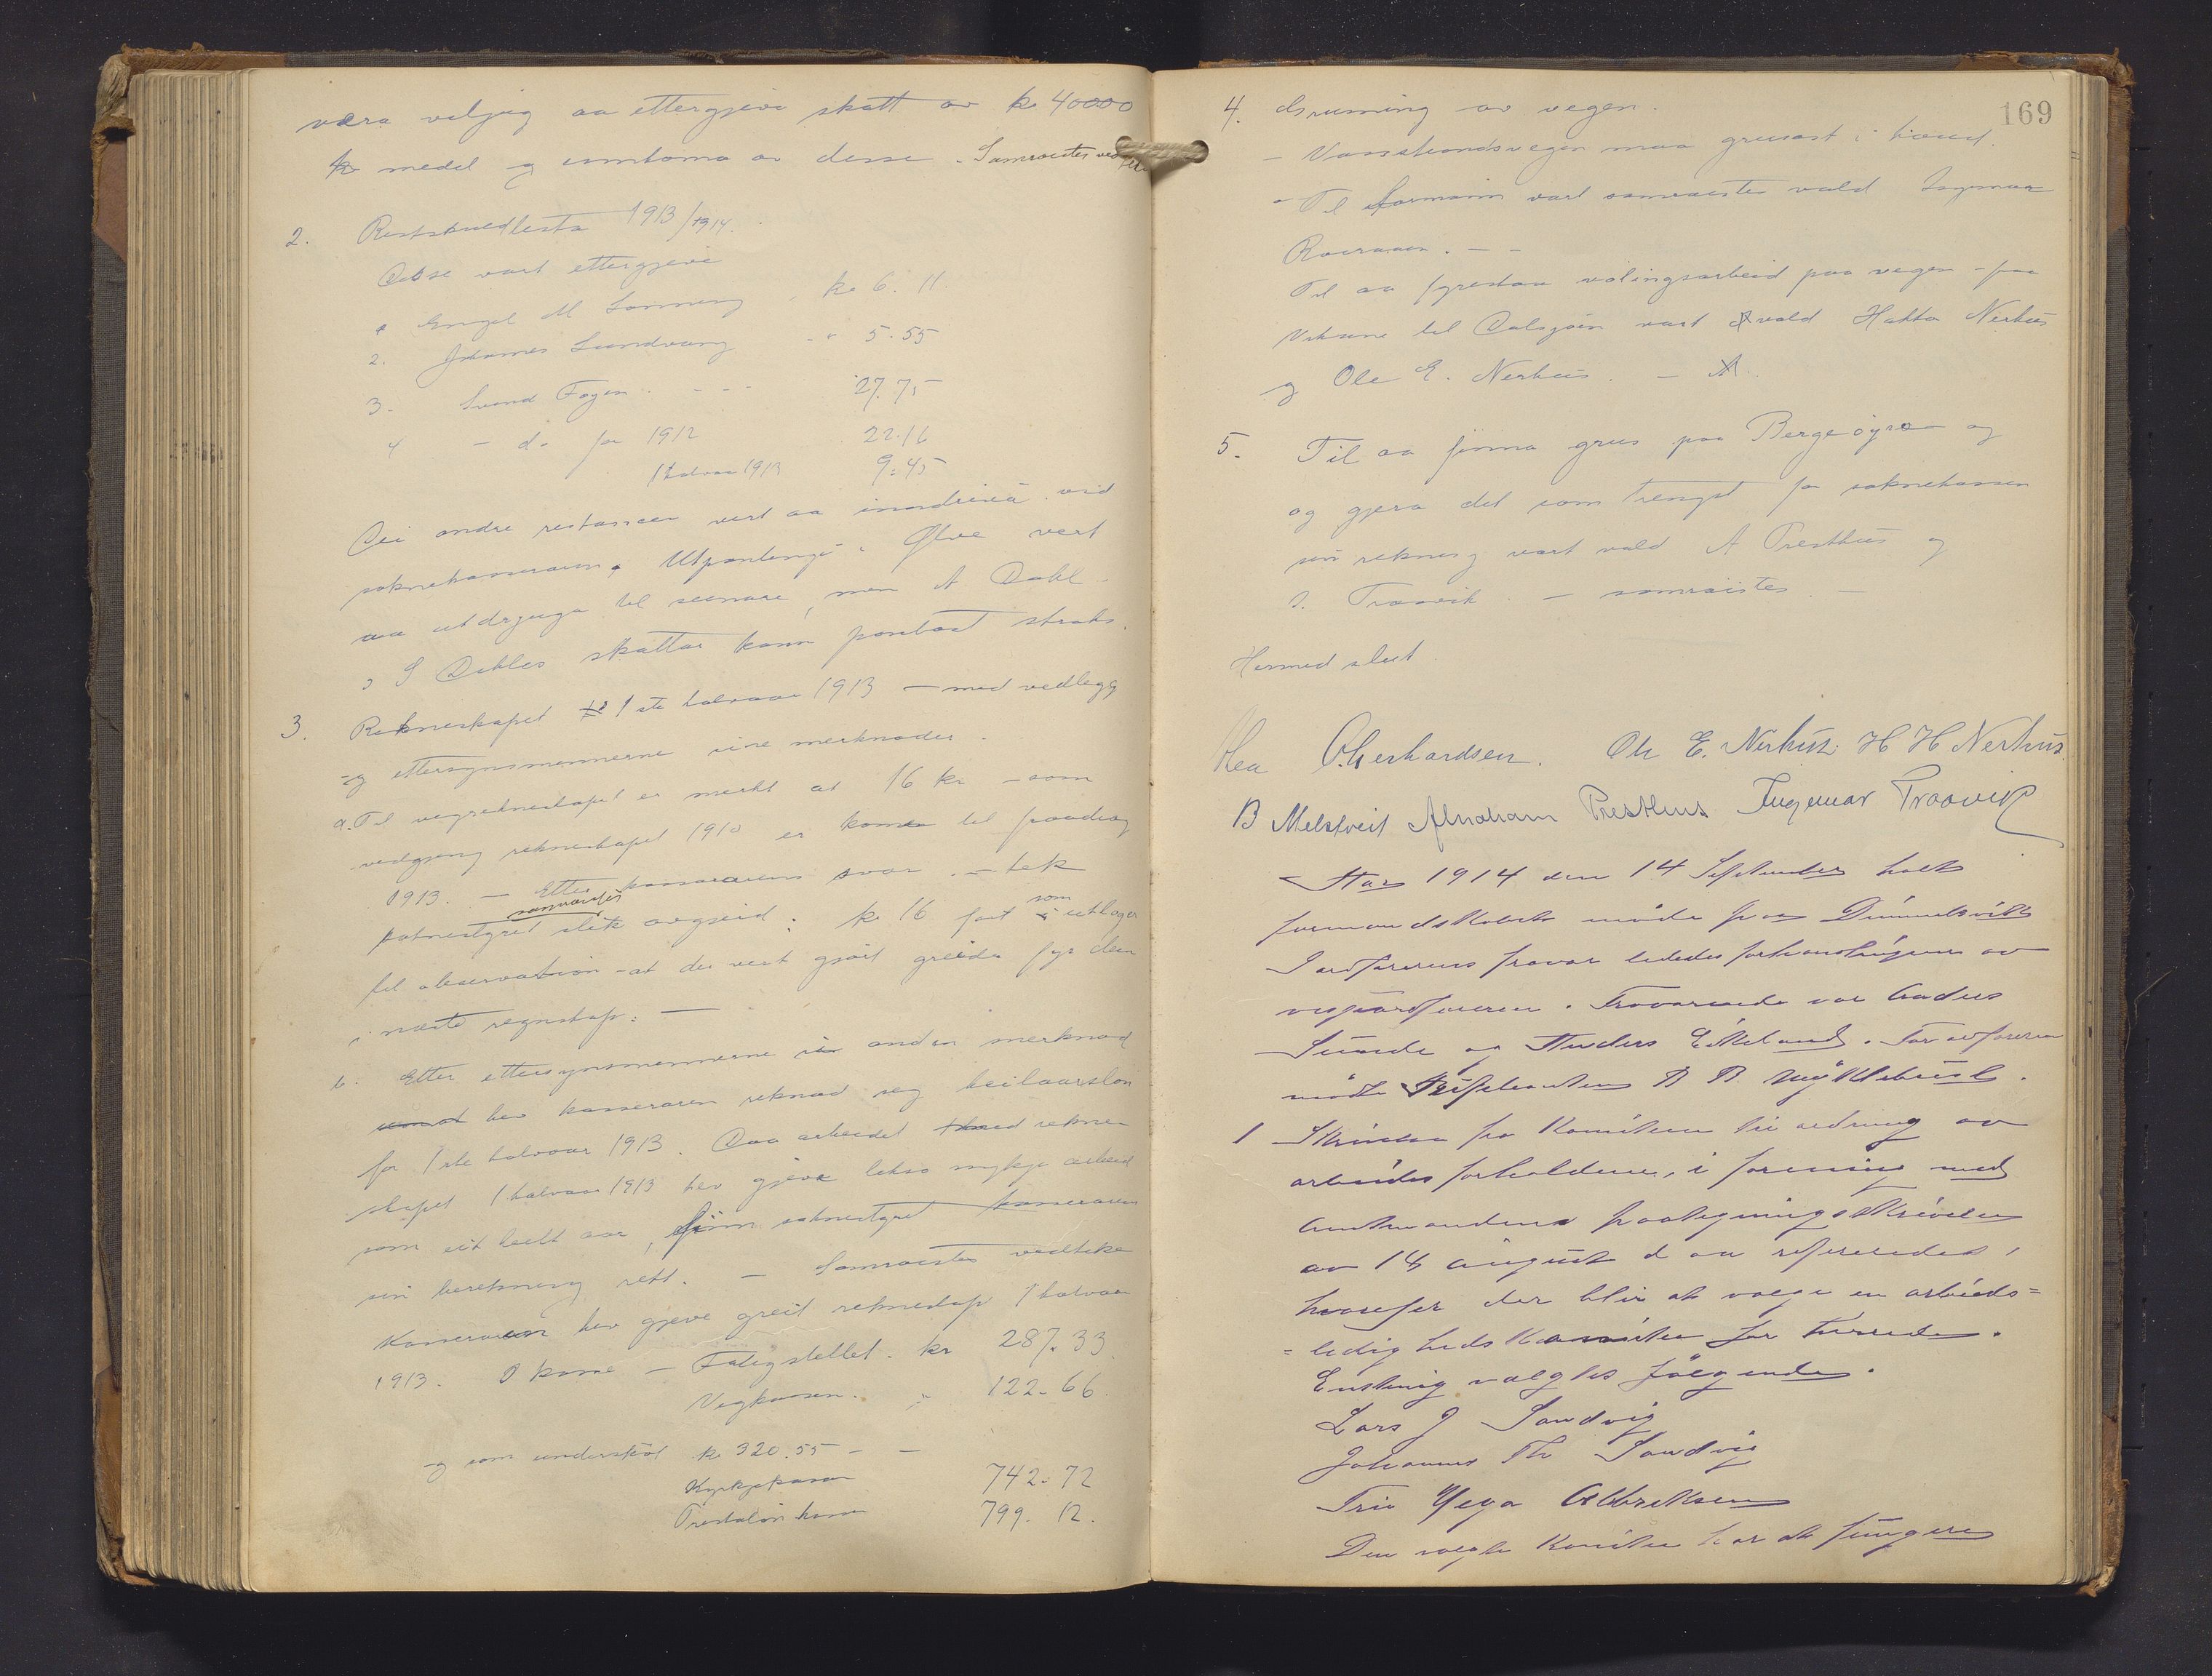 vera viljug aa ettergjeve skatt av kr 40000
kr medel og inntoma av desse. Samrøistes vedteke
2. Restskuedlesta 1913/1914.
Desse vart ettergjevi
1 Engel M Lonning kr 6.11.
2. Johannes Sundvang " 5.55
3. Svend Fagen 27.75
4 - do for 1912 22.16
1 halvaar 1913 9.45
Dei andre restanser vert aa inndriva ved
soknekasseraren. Utpantingi Ølve vert
aa utdryga til seinare, men A Dahl
S Dahles skattar kann pantast straks.
3. Rekneskapet 1ste halvaar 1913 - med vedlegg
og ettersynsmennerne sine merknader.
a. Til vegrekneskapet er merkt at 16 kr - som
vedgjeng rekneskapet 1910 er kome til fraadrag
1913. - Etter kasserarens svar. - tek
soknestyret samrøistes slik avgjerd: kr 16 fært som utlaga
til observation - at der vert gjort greide fyr den
i næste regnskap. -
b. Etter ettersynsmennerne sin andre merknad
hev kasseraren reknad seg heilaarsløn
for 1ste halvaar 1913. Daa arbeidet med rekne-
skapet 1 halvaar 1913 hev gjeve likso mykje arbeid
som eit heilt aar, finn soknestyret kasseraren
sin berekning rett. - Samrøistes vedteke
Kasseraren hev gjeve greit rekneskap 1 halvaar
1913. I kasse - Fatigstellet. kr 287.33
Vegkassen. " 122.66
og som underskot kr 320.55 - -
Kyrkjekassen 742.72
Prestaløn kassen 799.12.
169
4. Utrusning av vegen.
- Vannstrondsvegen maa grusast i haust.
- Til formann vart samrøistes vald Ingemar
Traavik. - -
Til aa fyrestaa vølingsarbeid paa vegen - fraa
Vikane til Dalsgøin vart vald Hakto Nerhus
og Ole E. Nerhus. -
5. Til aa finna grus paa Bergeøyra og
og gjera det som trengst for soknekassen
sin rekning vart vald A Presthus og
I. Traavik. - samrøistes -
Hermed slut.
O. Gerhardsen. Ole E. Nerhus H H Nerhus.
B Melstveit Abraham Presthus Ingemar Traavik
Aar 1914 den 14 September holt
formandskabet møde paa Dimmelsvik
I ordførerens fravær lededes forhandlingene av
viseordføreren. Fraværende var Anders
Sunde og Anders Eikeland. For ordføreren
mødte Suppleanten B B Myklebust.
1 Skrivelse fra Komiteen til ordning av
arbeidsforholdene, i forening med
Amtmandens paategningsskrivelse
av 14 august d aa refereredes,
hvorefter der blir at vælge en arbeids=
=ledighedskomite for herredet.
Enstemmig valgtes følgende.
Lars J Sandvig
Johannes Th Sandvig
Fru Yega Albreksen
Den valgte Komite har at fungere